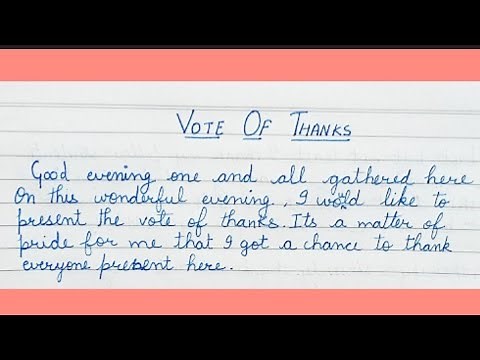 VOTE OF THANKS
Good evening one and all gathered here
On this wonderful evening, I would like to
present the vote of thanks. Its a matter of
pride for me that I got a chance to thank
everyone present here.